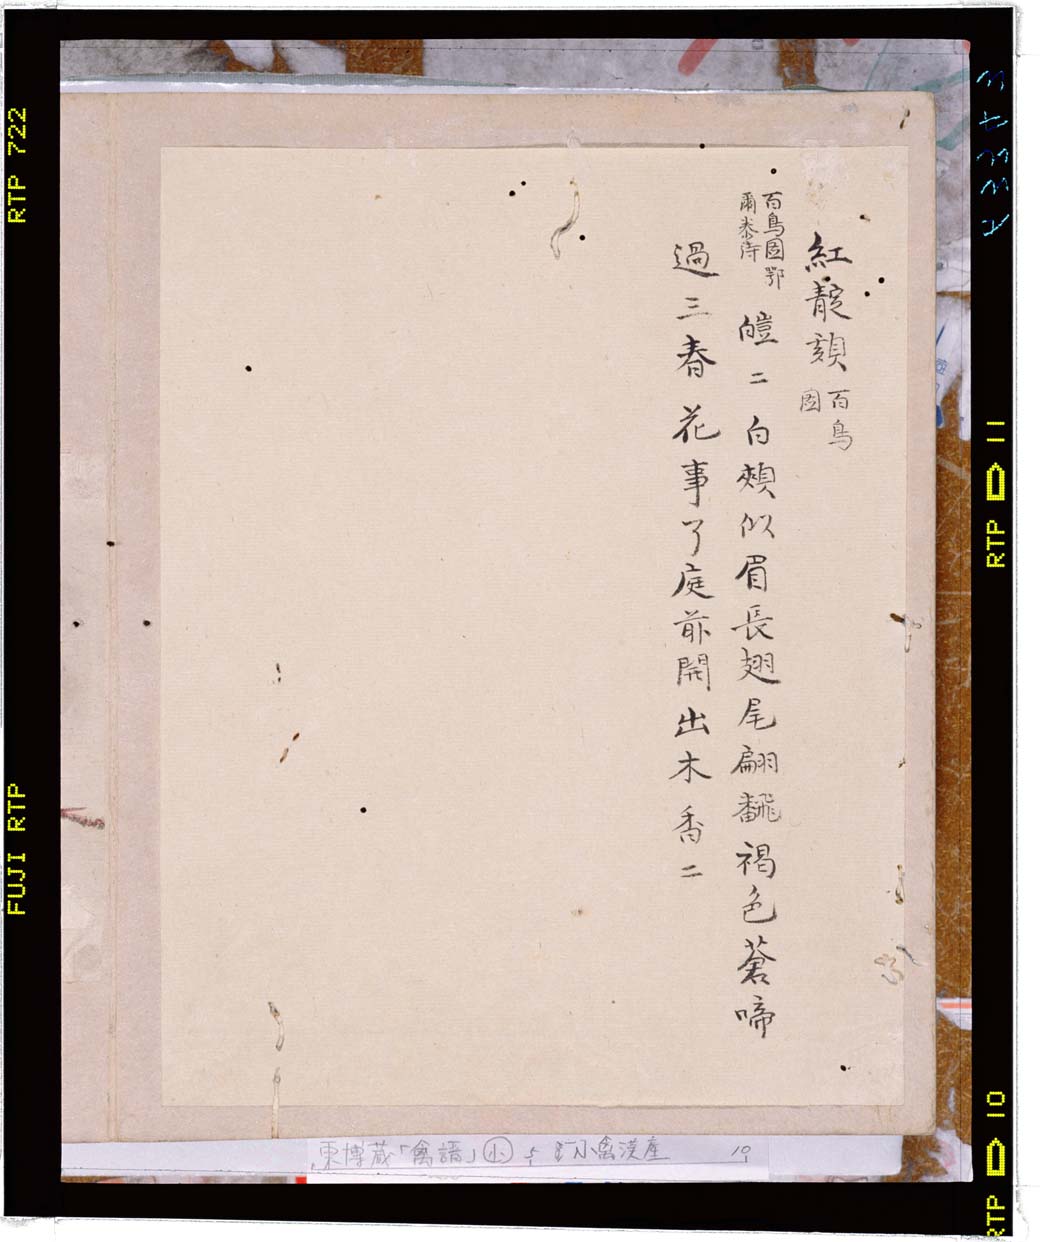 紅靛頦 百鳥
図
百鳥図 鄂
爾泰詩
皚〻白頰似眉長翅尾翩飜褐色蒼啼
過三春花事了庭前開出木香〻
東博蔵「禽譜」小 5 小禽漢産 10
RTP 722
FUJI RTP
RTP 11
RTP 10